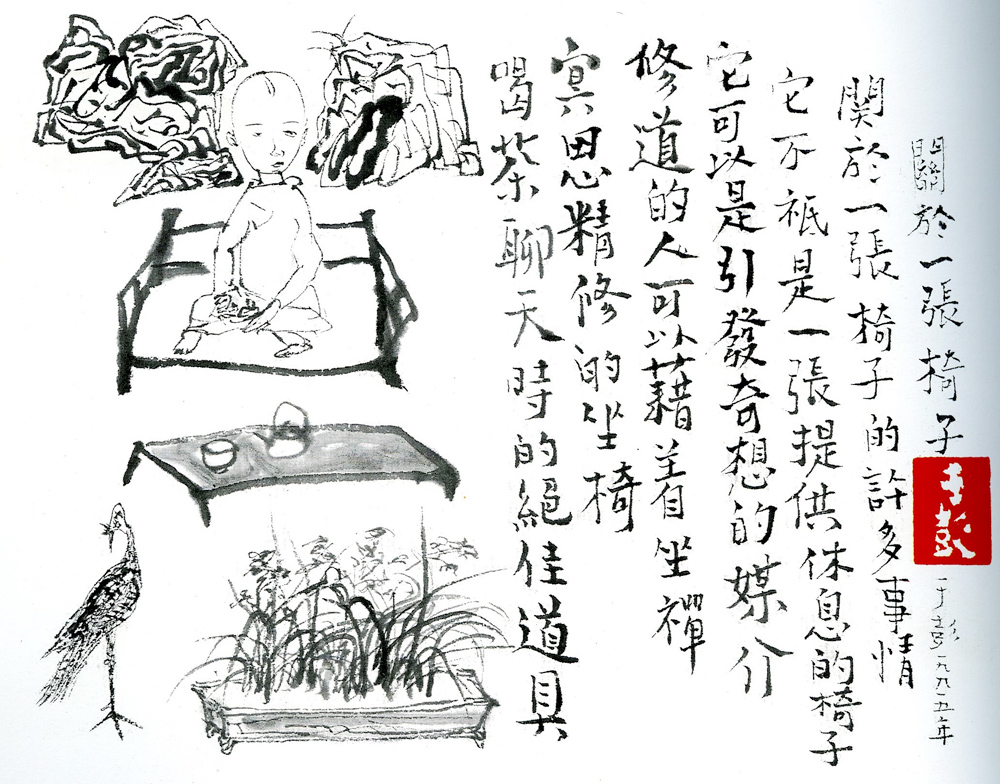 關於一張椅子
于彭
于彭一九九五年
関於一張椅子的許多事情
它不祗是一張提供休息的椅子
它可以是引發奇想的媒介
修道的人可以藉着坐禪
冥思精修的坐椅
喝茶聊天時的絕佳道具